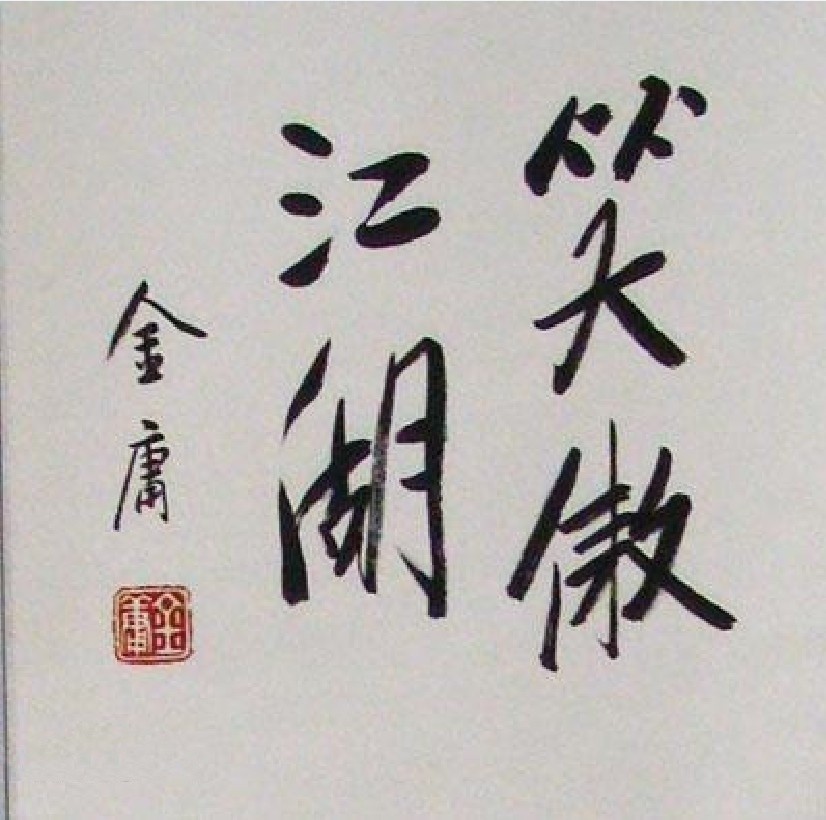 笑傲
江湖
金庸
金庸